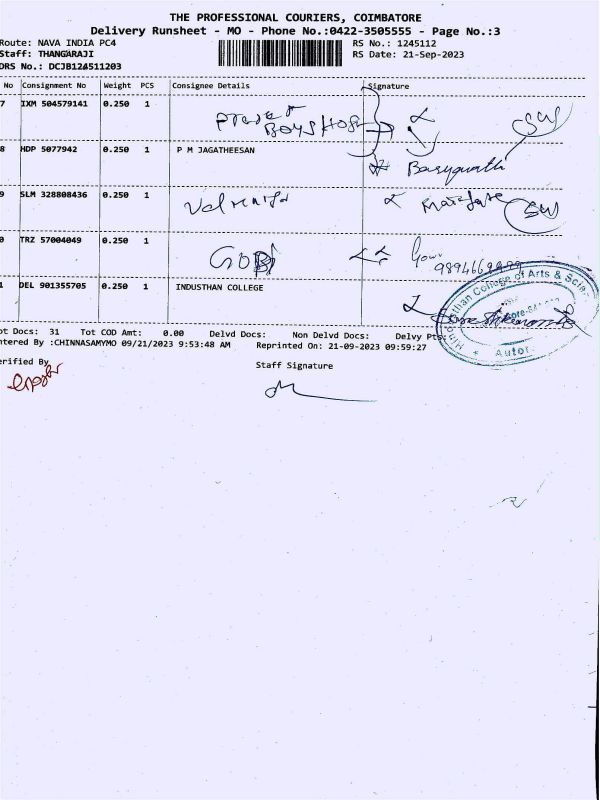 THE PROFESSIONAL COURIERS, COIMBATORE
Delivery Runsheet - MO - Phone No.:0422-3505555 - Page No.:3
Route: NAVA INDIA PC4 RS No.: 1245112
Staff: THANGARAJI RS Date: 21-Sep-2023
DRS No.: DCJB124511203
No Consignment No Weight PCS Consignee Details Signature
7 IXM 504579141 0.250 1 BOYS HOS
8 HDP 5077942 0.250 1 P M JAGATHEESAN
9 SLM 328808436 0.250 1
0 TRZ 57004049 0.250 1 GOBI
1 DEL 901355705 0.250 1 INDUSTHAN COLLEGE
Hindusthan College of Arts & Scie
Autor
ot Docs: 31 Tot COD Amt: 0.00 Delvd Docs: Non Delvd Docs: Delvy Pts:
ntered By :CHINNASAMYMO 09/21/2023 9:53:48 AM Reprinted On: 21-09-2023 09:59:27
erified By
Staff Signature